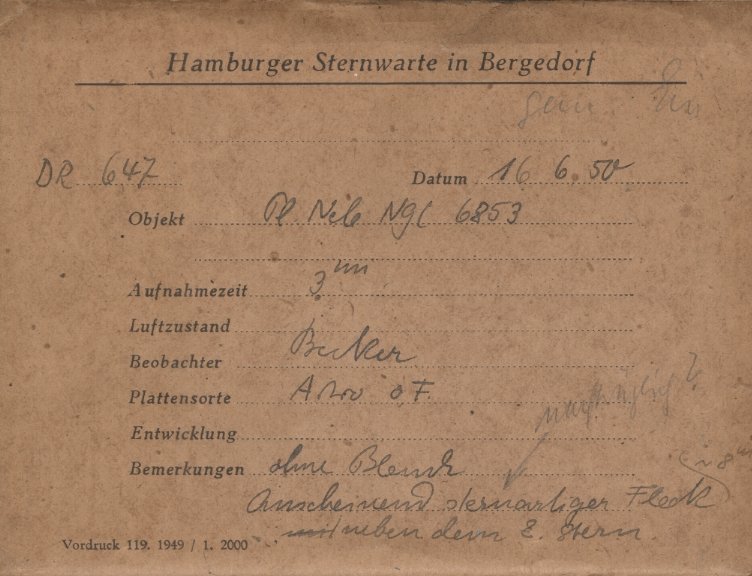 Hamburger Sternwarte in Bergedorf
DR 647 Datum 16 6. 50
Objekt Pl. Neb NGC 6853
Aufnahmezeit 3 m
Luftzustand
Beobachter Becker
Plattensorte Astro o F.
Entwicklung
Bemerkungen ohne Blende
Anscheinend sternartiger Fleck
neben dem Z. Stern.
Vordruck 119. 1949 / 1. 2000